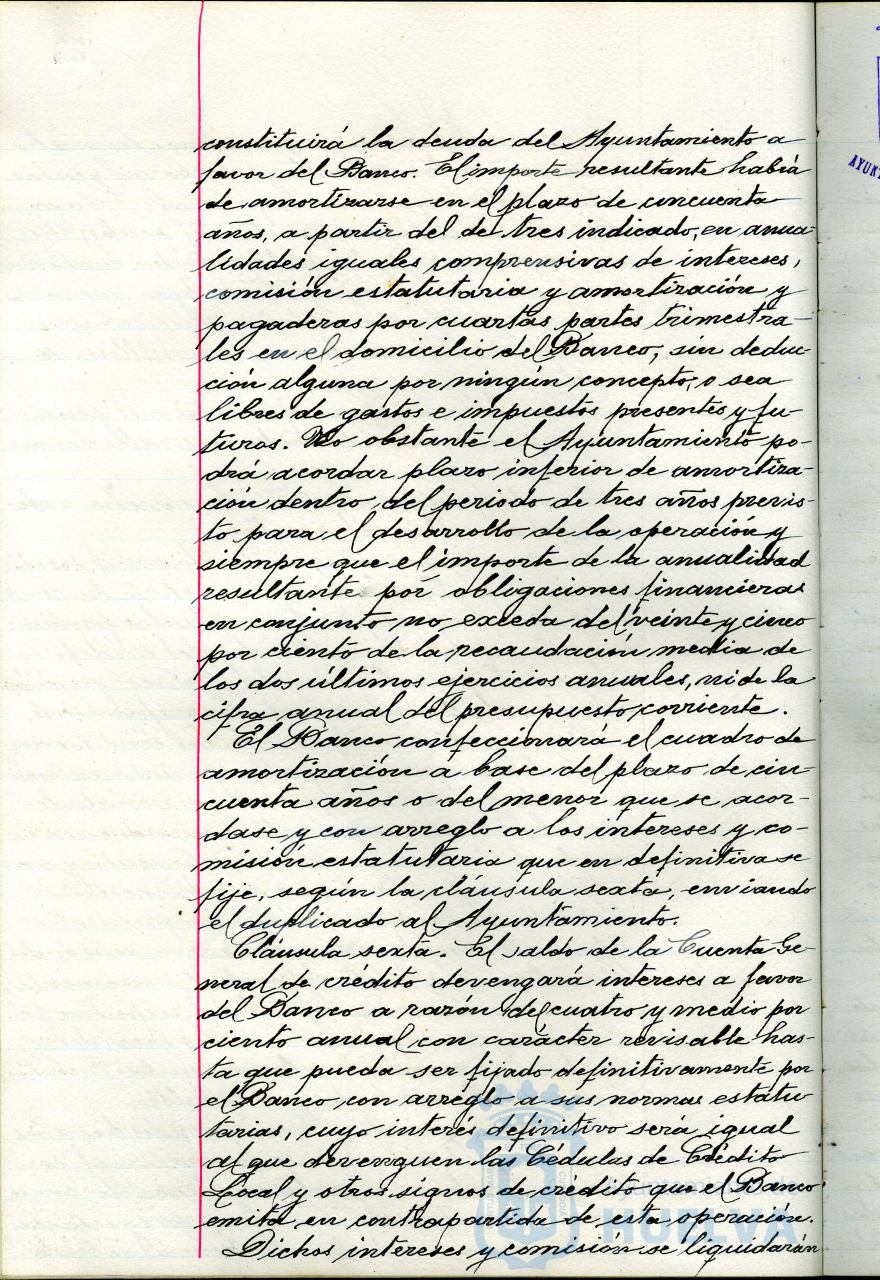 constituirá la deuda del Ayuntamiento a
favor del Banco. El importe resultante habrá
de amortizarse en el plazo de cincuenta
años, a partir del de tres indicado, en anua-
lidades iguales comprensivas de intereses,
comisión estatutaria y amortización y
pagaderas por cuartas partes trimestra-
les en el domicilio del Banco, sin deduc-
ción alguna por ningún concepto, o sea
libres de gastos e impuestos presentes y fu-
turos. No obstante el Ayuntamiento po-
drá acordar plazo inferior de amortiza-
ción dentro del periodo de tres años previs-
to para el desarrollo de la operación y
siempre que el importe de la anualidad
resultante por obligaciones financieras
en conjunto no exceda del veinte y cinco
por ciento de la recaudación media de
los dos últimos ejercicios anuales, ni de la
cifra anual del presupuesto corriente.
El Banco confeccionará el cuadro de
amortización a base del plazo de cin-
cuenta años o del menor que se acor-
dase y con arreglo a los intereses y co-
misión estatutaria que en definitiva se
fije, según la cláusula sexta, enviando
el duplicado al Ayuntamiento.
Cláusula sexta. El saldo de la Cuenta Ge-
neral de crédito devengará intereses a favor
del Banco a razón del cuatro y medio por
ciento anual con carácter revisable has-
ta que pueda ser fijado definitivamente por
el Banco, con arreglo a sus normas estatu-
tarias, cuyo interés definitivo será igual
al que devenguen las Cédulas de Crédito
Local y otros signos de crédito que el Banco
emita en contrapartida de esta operación.
Dichos intereses y comisión se liquidarán
AYUNT
HUELVA